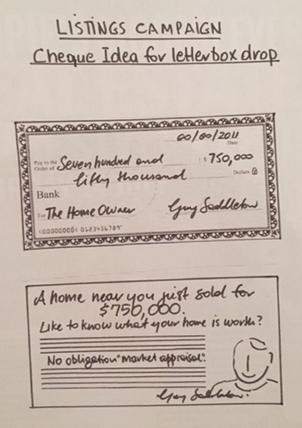 LISTINGS CAMPAIGN
Cheque Idea for letterbox drop
00/00/2011
Date
Pay to the
Order of Seven hundred and $ 750,000
fifty thousand Dollars
Bank
For The Home Owner Guy Saddleton
A home near you just sold for
$750,000.
Like to know what your home is worth?
No obligation "market appraisal".